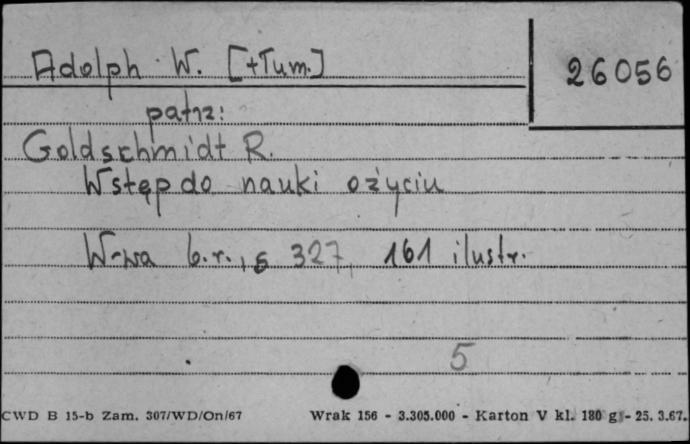 Adolph W. [+Tum.]
26056
patrz:
Goldschmidt R.
Wstęp do nauki o życiu
W-wa b.r., s 327, 161 ilustr.
5
CWD B 15-b Zam. 307/WD/On/67
Wrak 156 - 3.305.000 - Karton V kl. 180 g - 25. 3.67.